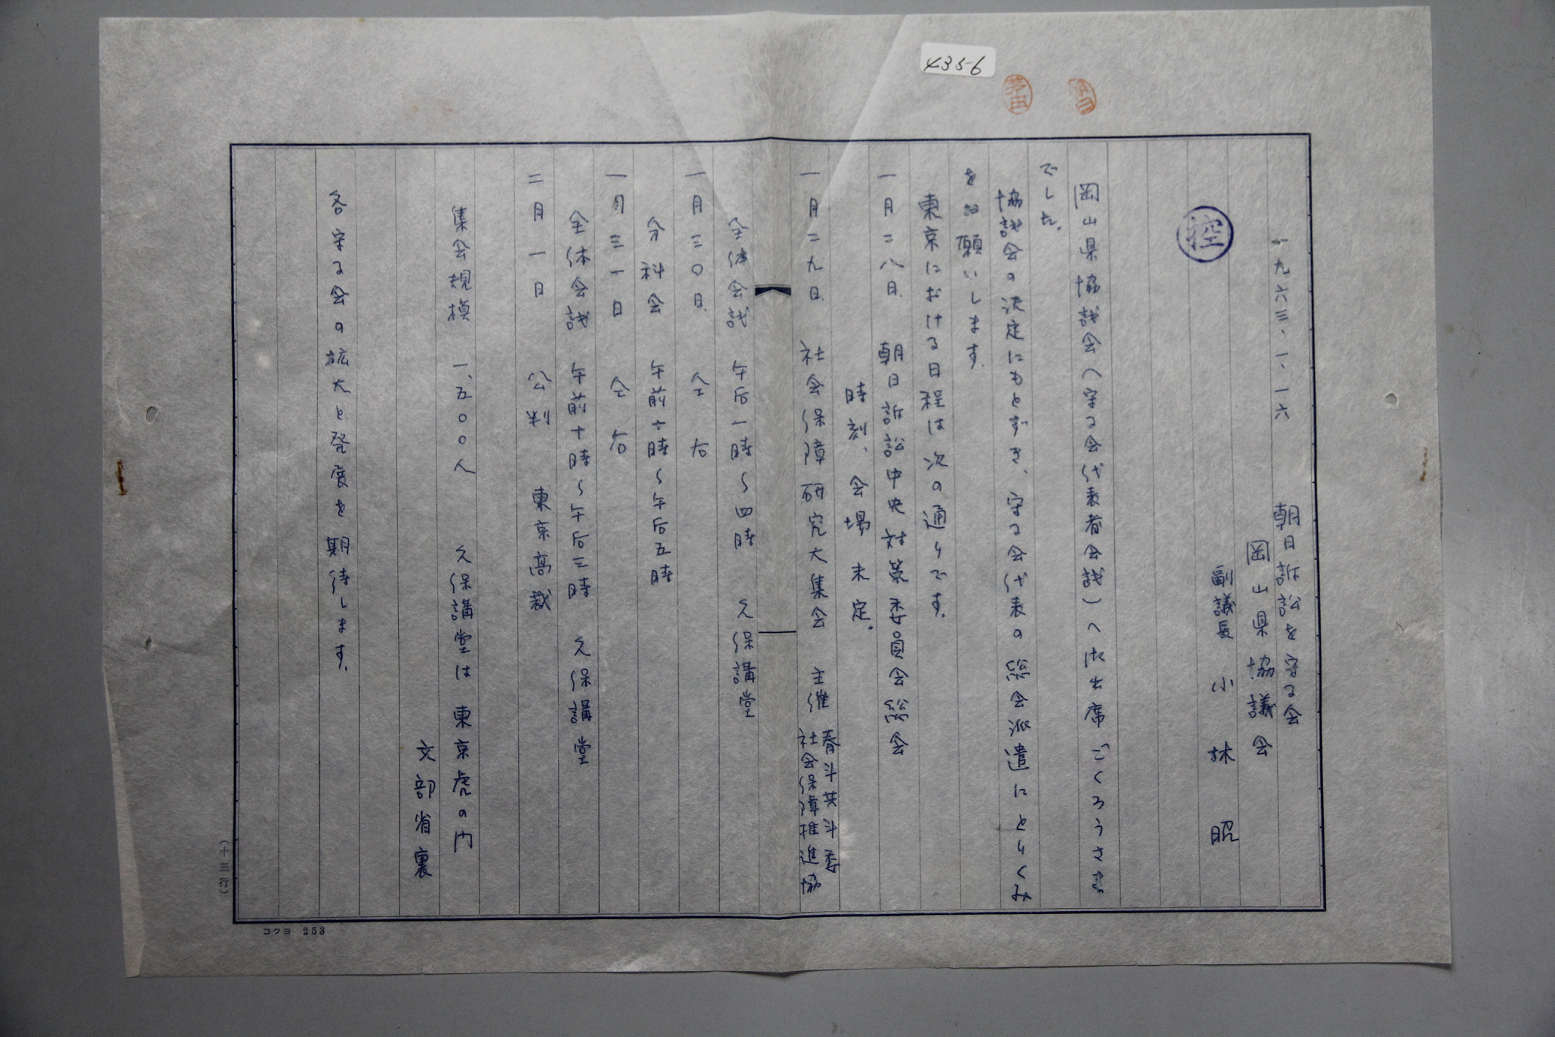 4356
一九六三、一、一六
朝日訴訟を守る会
岡山県協議会
副議長 小林昭
控
岡山県協議会(守る会代表者会議)へ御出席ごくろうさま
でした。
協議会の決定にもとずき、守る会代表の総会派遣にとりくみ
をお願いします。
東京における日程は次の通りです。
一月二八日 朝日訴訟中央対策委員会総会
時刻、会場未定。
一月二九日 社会保障研究大集会 主催 春斗共斗委
社会保障推進協
全体会議 午后一時〜四時 久保講堂
一月三〇日 仝右
分科会 午前十時〜午后五時
一月三一日 仝右
全体会議 午前十時〜午后三時 久保講堂
二月一日 公判 東京高裁
集会規模 一、五〇〇人 久保講堂は東京虎の門
文部省裏
各守る会の拡大と発展を期待します。
(十三行)
コクヨ 253